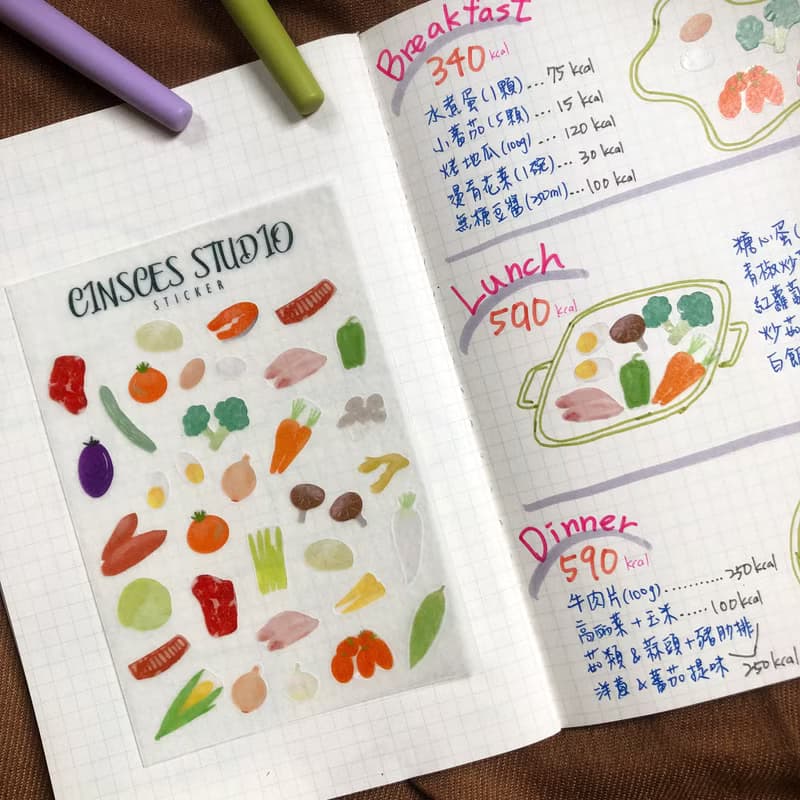 CINSCES STUDIO
STICKER
Breakfast
340 kcal
水煮蛋(1顆)...75 kcal
小番茄(5顆)...15 kcal
烤地瓜(100g)...120 kcal
燙青花菜(1碗)...30 kcal
無糖豆醬(250ml)...100 kcal
Lunch
590 kcal
糖心蛋(
青椒炒
紅蘿蔔
炒菇
白飯
Dinner
590 kcal
牛肉片(100g)...........250 kcal
高麗菜+玉米......100 kcal
菇類&蒜頭+豬肋排
洋蔥&蕃茄提味 250 kcal